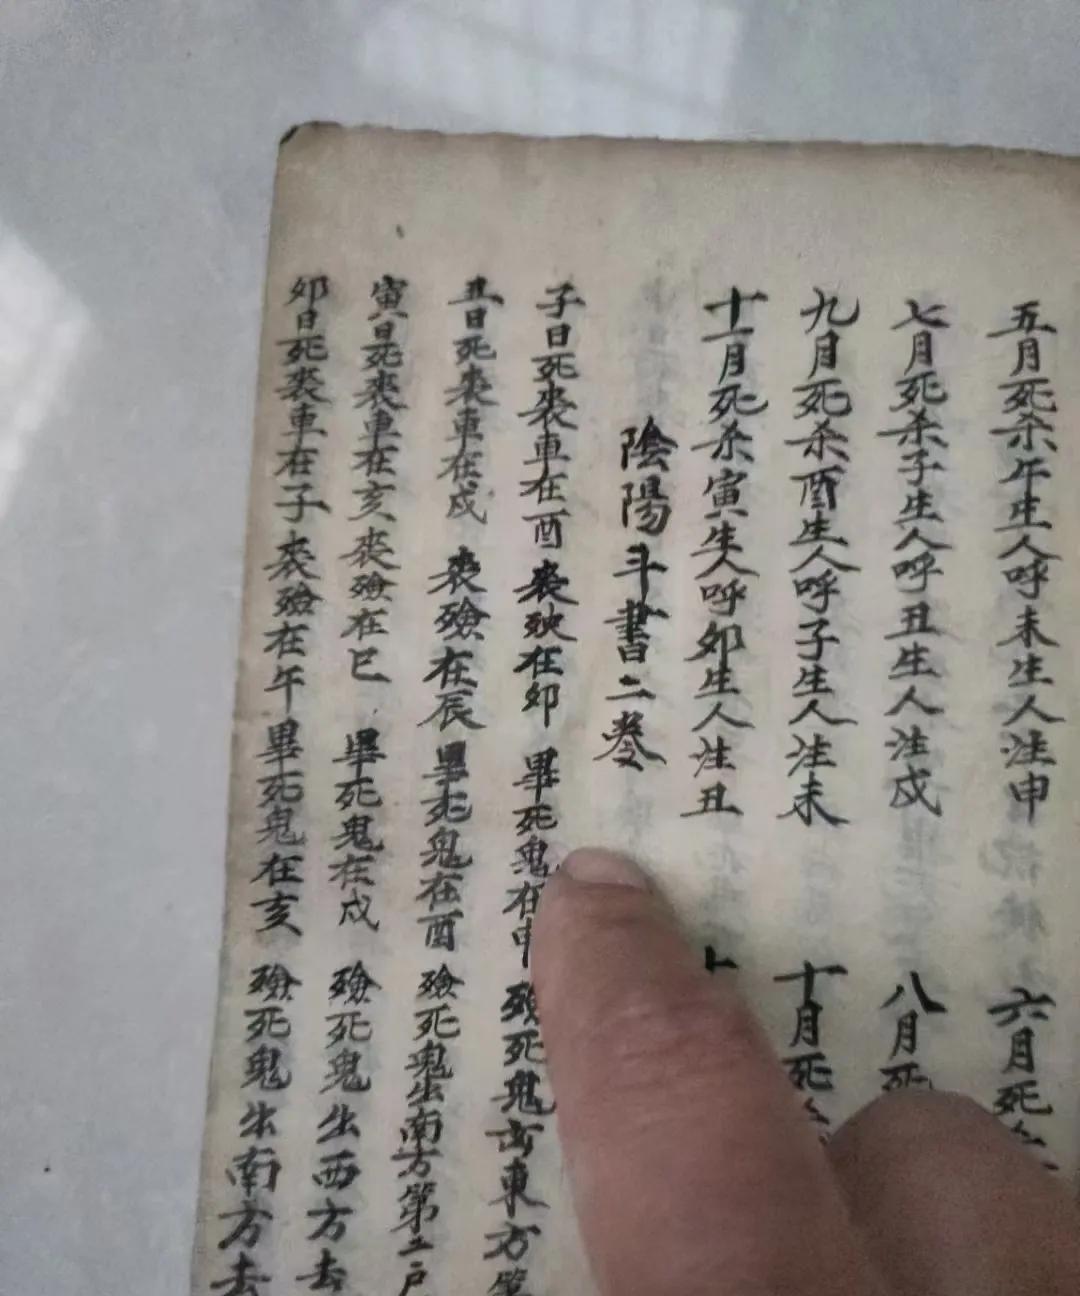 五月死杀午生人呼未生人注申
六月死
七月死杀子生人呼丑生人注戌
八月死
九月死杀酉生人呼子生人注未
十月死
十一月死杀寅生人呼卯生人注丑
陰陽斗書二卷
子日死丧車在酉 丧殃在卯 畢死鬼在申 殮死鬼出東方第
丑日死丧車在戌 丧殮在辰 畢死鬼在酉 殮死鬼出南方第二户
寅日死丧車在亥丧殮在巳 畢死鬼在戌 殮死鬼出西方去
卯日死丧車在子丧殮在午畢死鬼在亥 殮死鬼出南方去